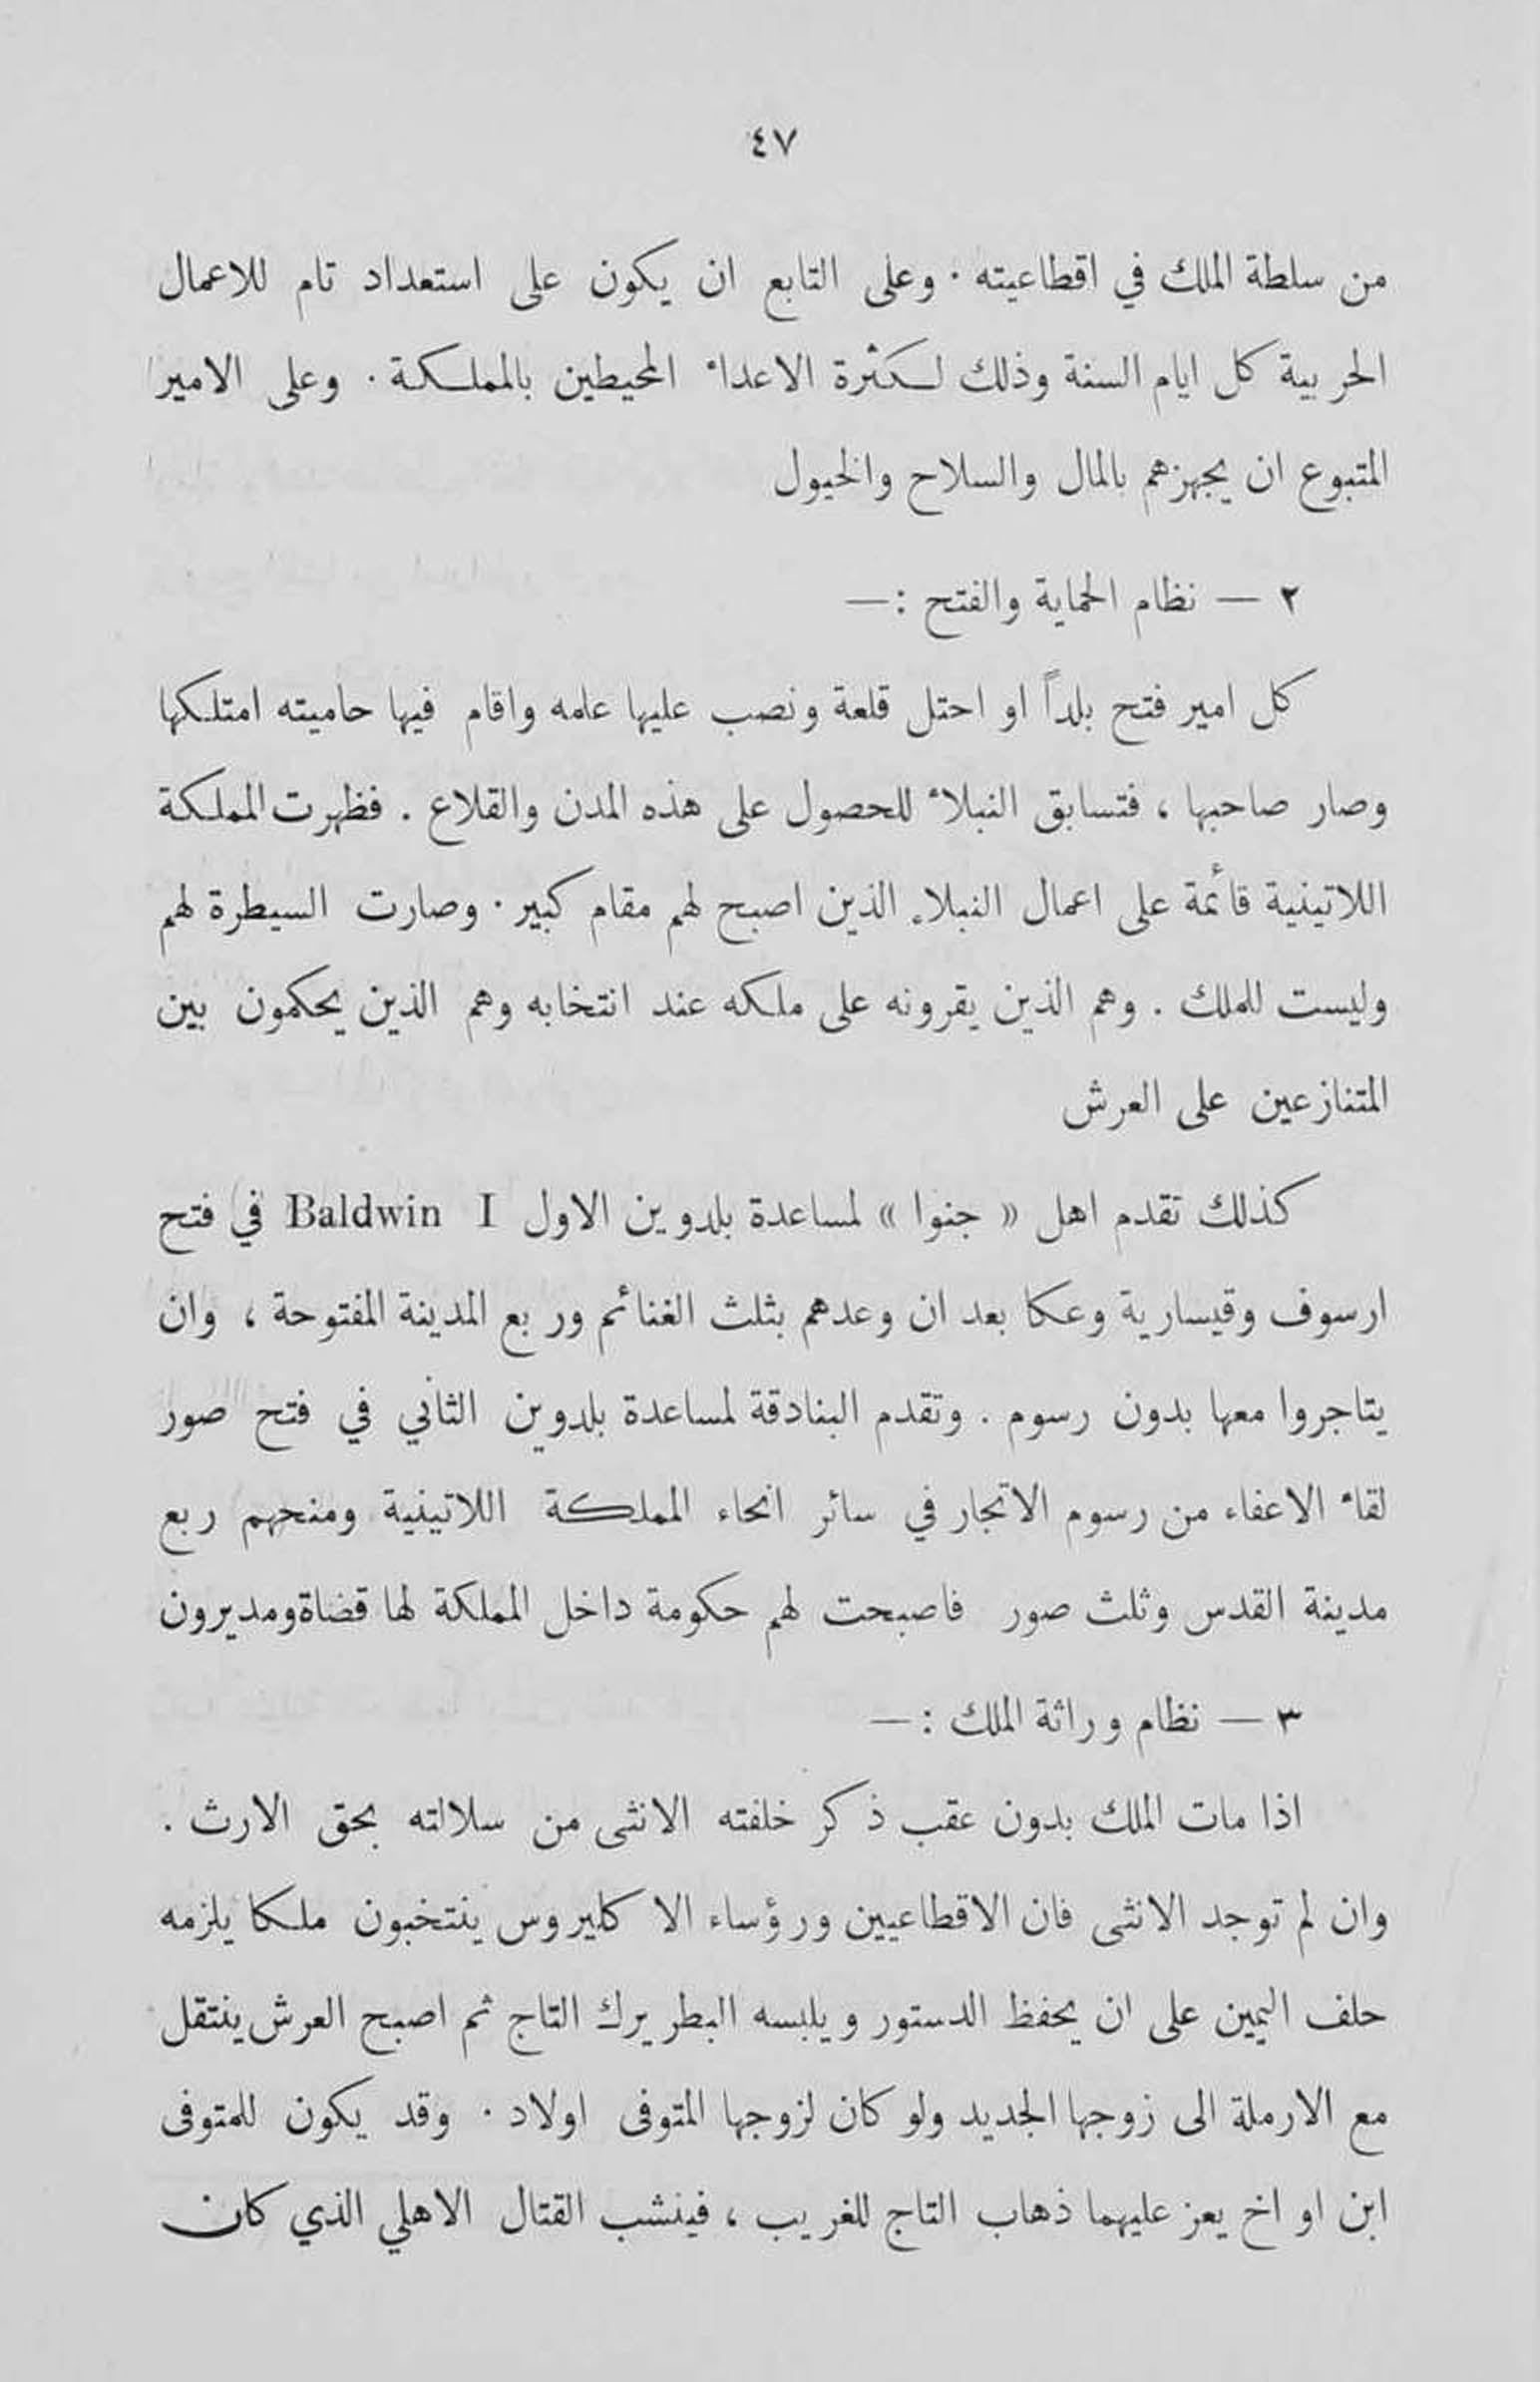 ٤٧
من سلطة الملك في اقطاعيته . وعلى التابع ان يكون على استعداد تام للاعمال
الحربية كل ايام السنة وذلك لكثرة الاعداء المحيطين بالمملكة . وعلى الامير
المتبوع ان يجهزهم بالمال والسلاح والخيول
٢ — نظام الحماية والفتح : —
كل امير فتح بلداً او احتل قلعة ونصب عليها علمه واقام فيها حاميته امتلكها
وصار صاحبها ، فتسابق النبلاء للحصول على هذه المدن والقلاع . فظهرت المملكة
اللاتينية قائمة على اعمال النبلاء الذين اصبح لهم مقام كبير . وصارت السيطرة لهم
وليست للملك . وهم الذين يقرونه على ملكه عند انتخابه وهم الذين يحكمون بين
المتنازعين على العرش
كذلك تقدم اهل « جنوا » لمساعدة بلدوين الاول Baldwin I في فتح
ارسوف وقيسارية وعكا بعد ان وعدهم بثلث الغنائم وربع المدينة المفتوحة ، وان
يتاجروا معها بدون رسوم . وتقدم البنادقة لمساعدة بلدوين الثاني في فتح صور
لقاء الاعفاء من رسوم الاتجار في سائر انحاء المملكة اللاتينية ومنحهم ربع
مدينة القدس وثلث صور فاصبحت لهم حكومة داخل المملكة لها قضاة ومديرون
٣ — نظام وراثة الملك : —
اذا مات الملك بدون عقب ذكر خلفته الانثى من سلالته بحق الارث .
وان لم توجد الانثى فان الاقطاعيين ورؤساء الاكليروس ينتخبون ملكا يلزمه
حلف اليمين على ان يحفظ الدستور ويلبسه البطريرك التاج ثم اصبح العرش ينتقل
مع الارملة الى زوجها الجديد ولو كان لزوجها المتوفى اولاد . وقد يكون للمتوفى
ابن او اخ يعز عليهما ذهاب التاج للغريب ، فينشب القتال الاهلي الذي كان